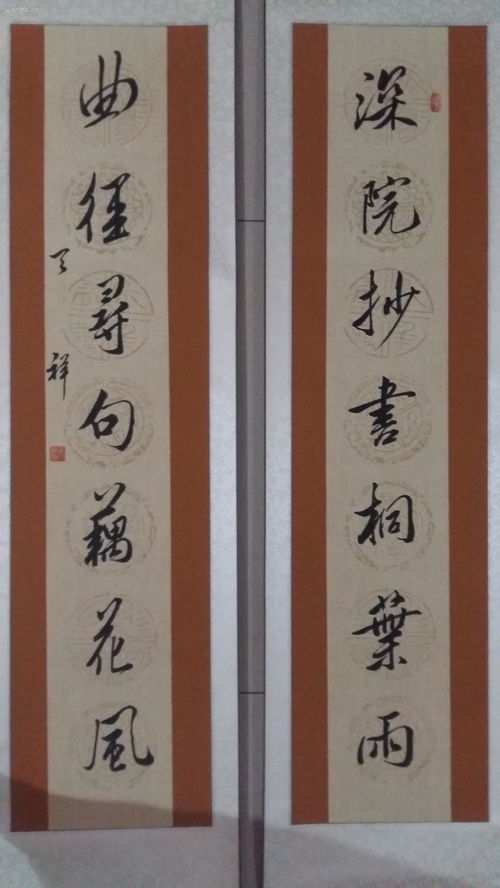 深院抄書桐葉雨
曲徑尋句藕花風
天祥